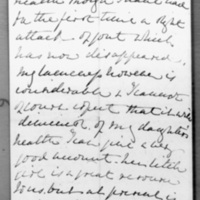 health though I have had
for the first time a slight
attack of gout which
has now disappeared.
My lameness however is
considerable & I cannot
of course expect that it will
diminish. Of my daughters
health I can give a very
good account. Her little
is a great
but at present is